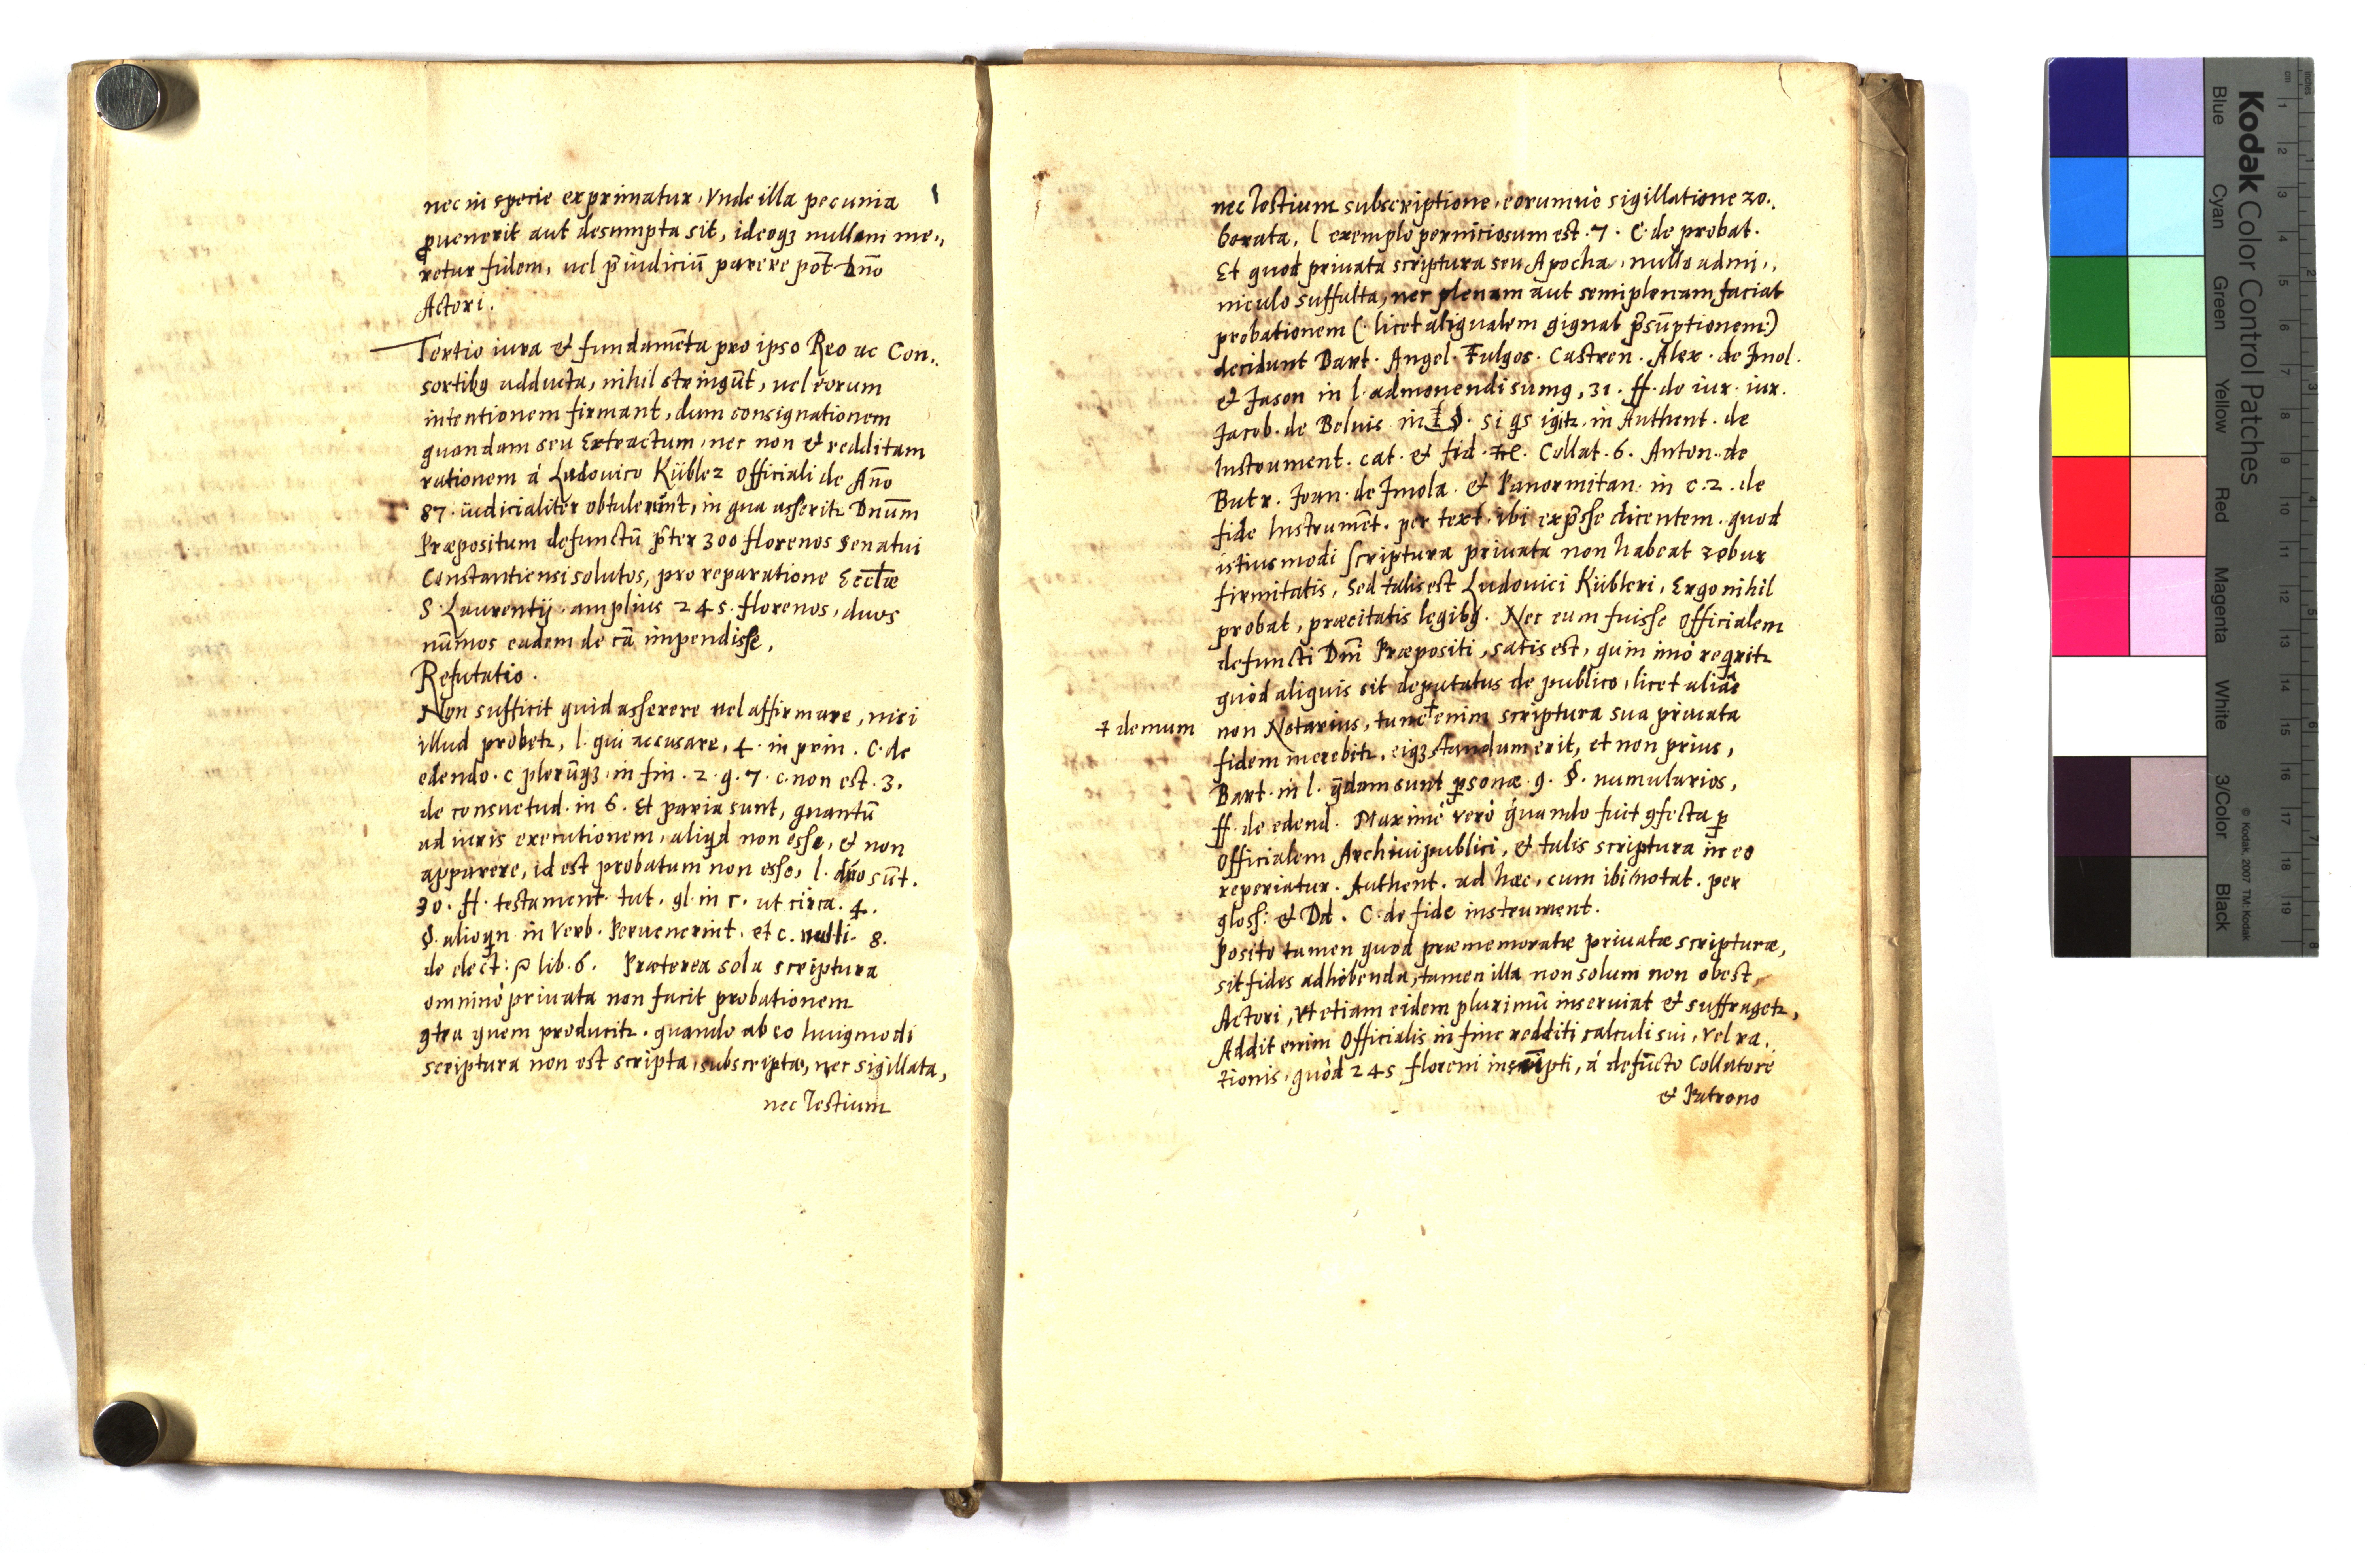 nec in specie exprimatur, vnde illa pecunia
ꝓuenerit aut desumpta sit, ideoqꝫ nullam me„
retur fidem, uel p̄iudiciū parere pot̄ Dn̄o
Actori.
Tertio iura et fundamēta pro ipso Reo ac Con„
sortibꝯ adducta, nihil stringūt, uel eorum
intentionem firmant, dum consignationem
quandam seu Extractum, nec non et redditam
rationem á Ludouico Kübler Officiali de An̄o
87. iudicialitèr obtulerūnt, in qua asseritꝛ Dnūm
Præpositum defunctū p̄ter 300 florenos Senatui
Constantiensi solutos, pro reparatione Eccłæ
S. Laurentij, amplius 245. florenos, duos
nūmos eadem de cā impendisse.
Refutatio.
Non sufficit quid asserere uel affirmare, nisi
illud probetꝛ, l. qui accusare, 4. in prin. C. de
edendo. c plerūqꝫ in fin. 2. q. 7. c. non est. 3.
de consuetud. in 6. Et paria sunt, quantū
ad iuris executionem, aliqd non esse, et non
apparere, id est probatum non esse, l. duo sūt.
30. ff. testament. tut. gl. in c. ut circa. 4.
§. alioqn in Verb. Peruenerint. et c. nulli. 8.
de elect: lib. 6. Præterea sola scriptura
omninò priuata non facit probationem
ꝯtra quem producitꝛ. quando ab eo huiꝯmodi
scriptura non est scripta, subscripta, nec sigillata,
nec Testium
nec Testium subscriptione, eorumuè sigillatione ro„
borata, l exemplo perniciosum est. 7. C. de probat.
Et quod priuata scriptura seu Apocha, nullo admi„
niculo suffulta, nec plenam aut semiplenam faciat
probationem (: licet aliqualem gignat p̄sūptionem:)
decidunt Bart. Angel. Fulgos. Castren. Alex. de Imol.
et Jason in l. admonendi sumꝯ, 31. ff. de iur. iur.
Jacob. de Beluis in §. si qs igitꝛ, in Authent. de
Instrument. cat. et fid. Collat. 6. Anton. de
Butr. Joan. de Imola. et Panormitan. in c. 2. de
fide Instrumēt. per text. ibi exp̄sse dicentem. quod
istiusmodi scriptura priuata non habeat robur
firmitatis, Sed talis est Ludouici Kübleri, Ergo nihil
probat, præcitatis legibꝯ. Nec eum fuisse Officialem
defuncti Dn̄i Præpositi, satis est, quin imò reqritꝛ
quòd aliquis sit deputatus de publico, licet aliàs
non Notarius, tunc † enim scriptura sua priuata
† demum
fidem merebitꝛ, eiqꝫ standum erit, et non prius,
Bart. in l. qdam sunt ꝑsonæ. 9. §. numularios,
ff. de edend. Maximè verò quando fuit ꝯfecta ꝑ
Officialem Archiui publici, et talis scriptura in eo
reperiatur. Authent. ad hæc, cum ibi notat. per
gloss: et Dd. C. de fide instrument.
Posito tamen quod præmemoratæ priuatæ scripturæ,
sit fides adhibenda, tamen illa non solum non obest,
Actori, vt etiam eidem plurimū inseruiat et suffragetꝛ,
Addit enim Officialis in fine redditi calculi sui, vel ra„
tionis, quòd 245 floreni inscripti, á defūcto Collatore
et Patrono
Kodak Color Control Patches
Blue
Cyan
Green
Yellow
Red
Magenta
White
3/Color
Black
© Kodak, 2007 TM: Kodak